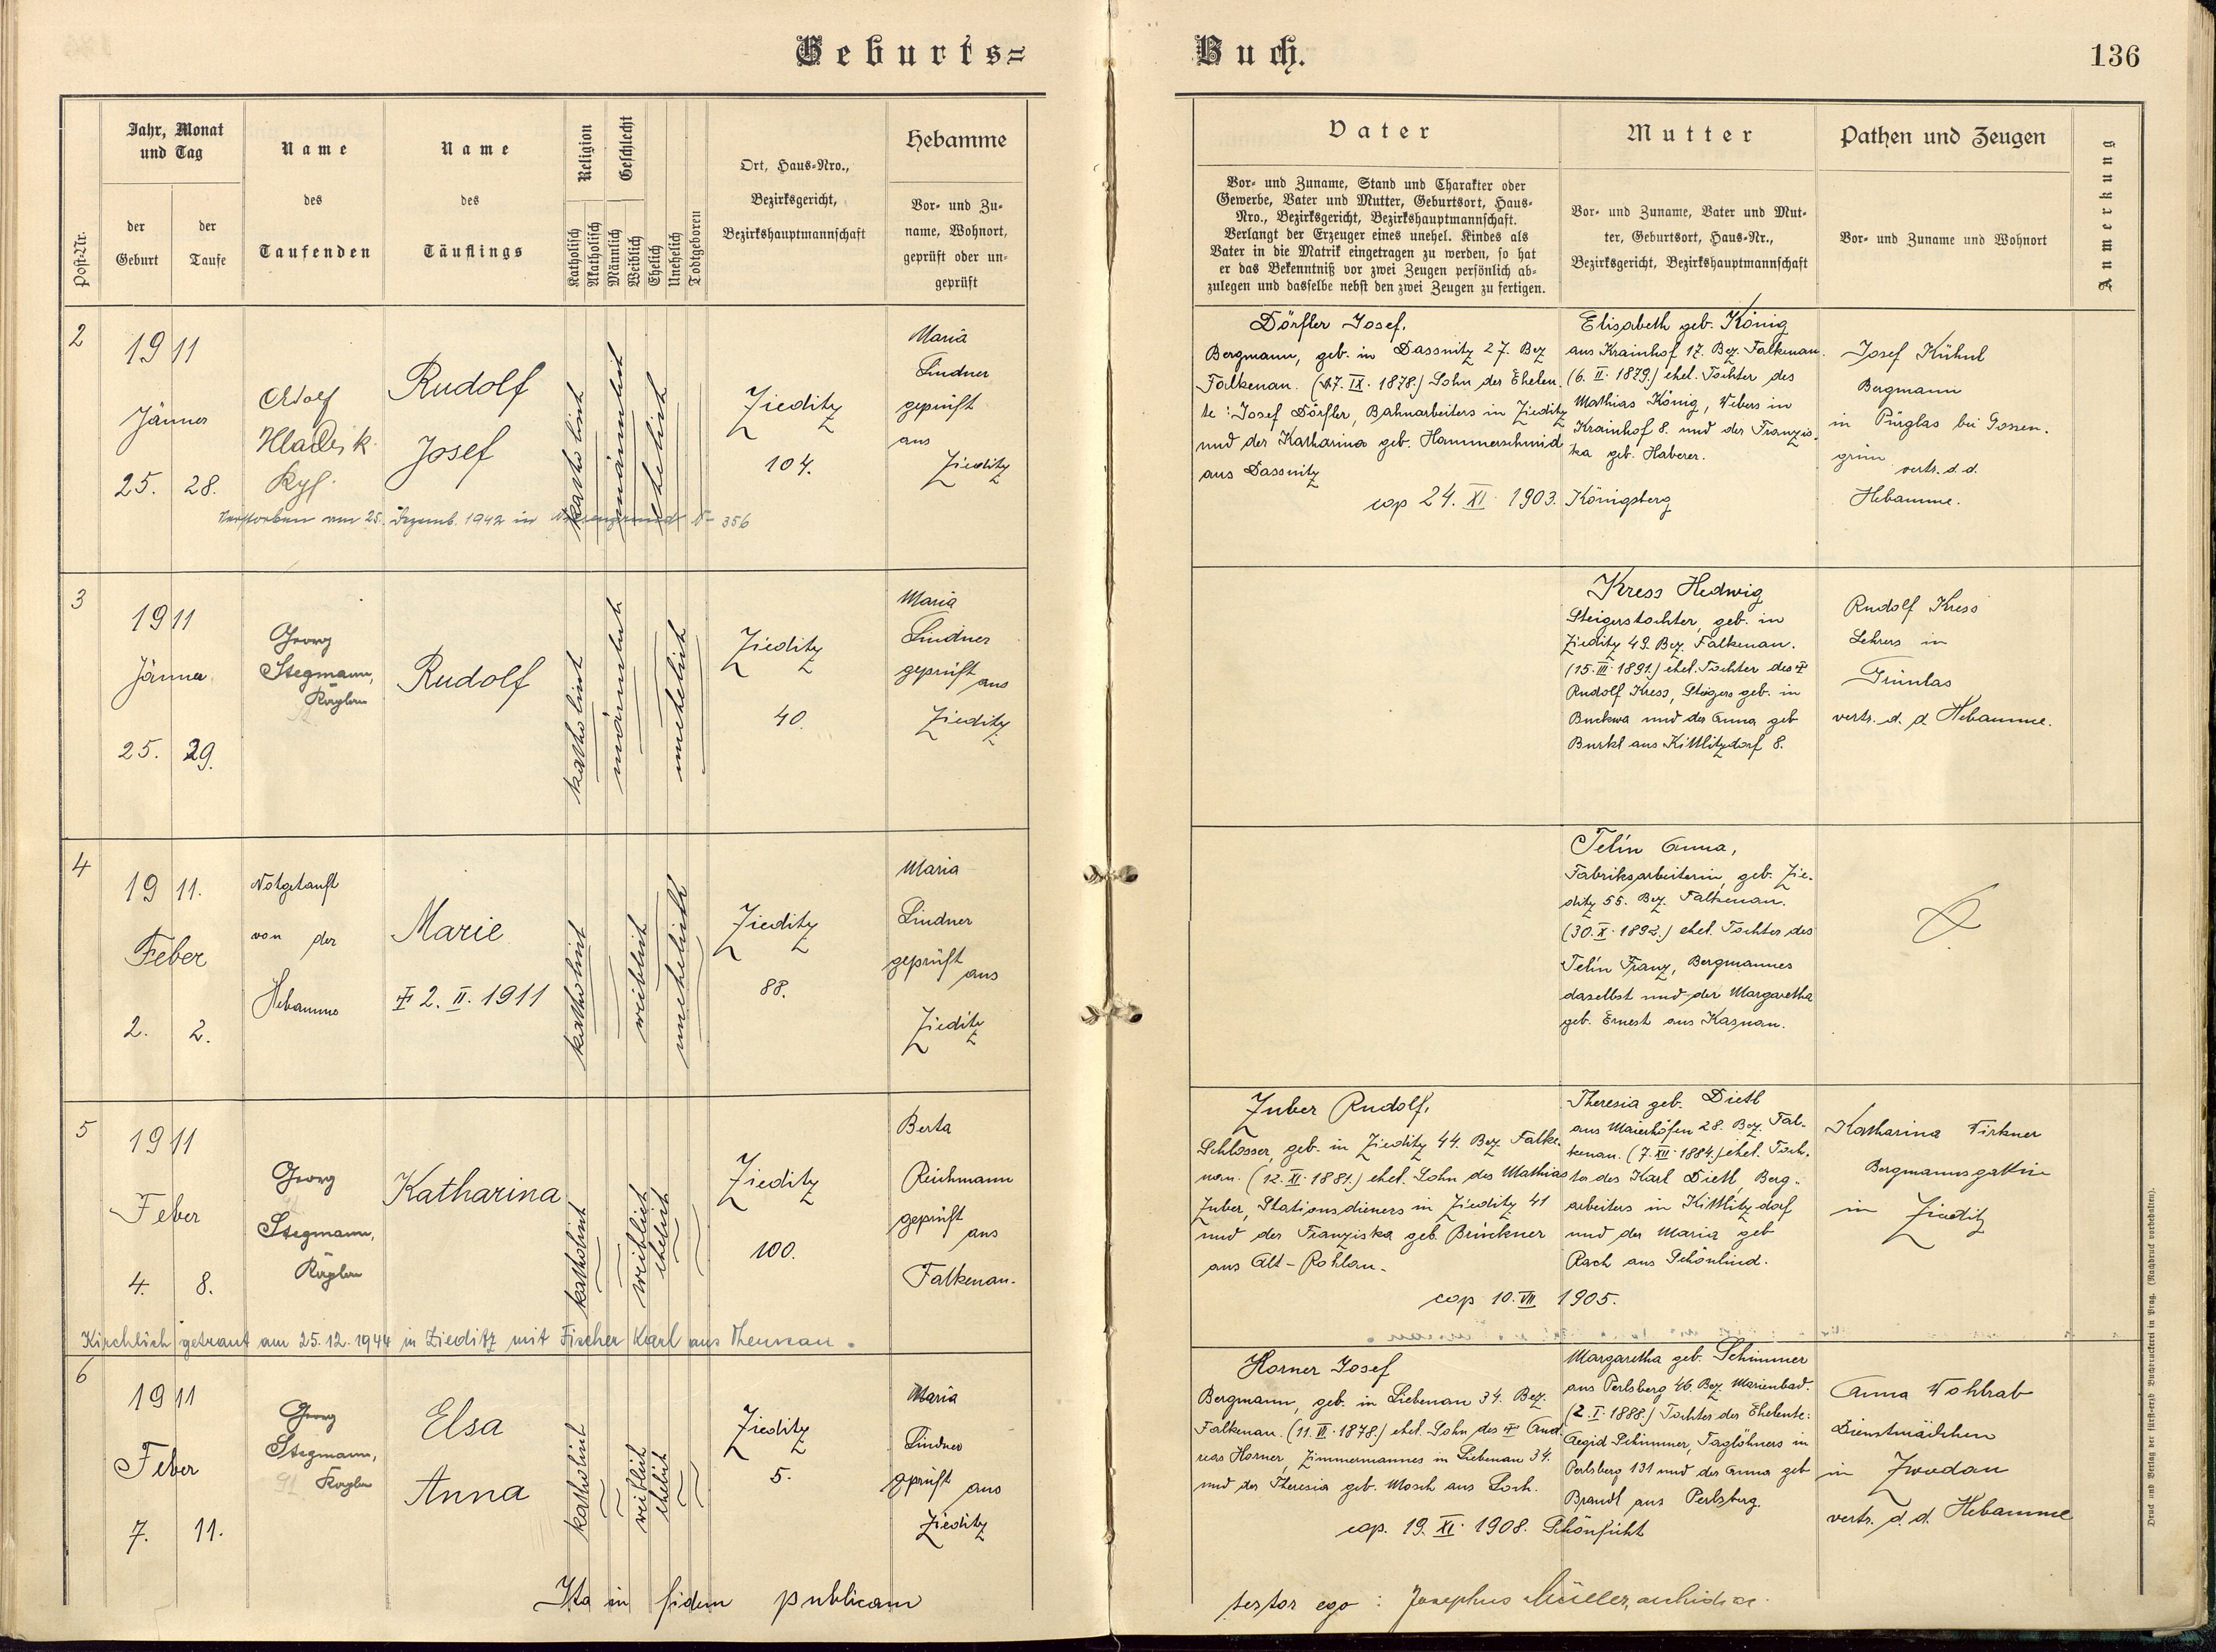 Geburts=
Buch.
136
Post-Nr.
Jahr, Monat
und Tag
der
Geburt
der
Taufe
Name
des
Taufenden
Name
des
Täuflings
Religion
Katholisch
Akatholisch
Geschlecht
Männlich
Weiblich
Ehelich
Unehelich
Todtgeboren
Ort, Haus-Nro.,
Bezirksgericht,
Bezirkshauptmannschaft
Hebamme
Vor- und Zu-
name, Wohnort,
geprüft oder un-
geprüft
Vater
Vor- und Zuname, Stand und Charakter oder
Gewerbe, Vater und Mutter, Geburtsort, Haus-
Nro., Bezirksgericht, Bezirkshauptmannschaft.
Verlangt der Erzeuger eines unehel. Kindes als
Vater in die Matrik eingetragen zu werden, so hat
er das Bekenntniß vor zwei Zeugen persönlich ab-
zulegen und dasselbe nebst den zwei Zeugen zu fertigen.
Mutter
Vor- und Zuname, Vater und Mut-
ter, Geburtsort, Haus-Nr.,
Bezirksgericht, Bezirkshauptmannschaft
Pathen und Zeugen
Vor- und Zuname und Wohnort
Anmerkung
2
1911
Jänner
25. 28.
Adolf
Hladik
Kpl.
Rudolf
Josef
katholisch
männlich
ehelich
Zieditz
104.
Maria
Lindner
geprüft
aus
Zieditz
Verstorben am 25. Dezemb. 1942 in
356
Dörfler Josef,
Bergmann, geb. in Dassnitz 27. Bez
Falkenau. (17. IX. 1878.) Sohn der Eheleu-
te: Josef Dörfler, Bahnarbeiters in Zieditz
und der Katharina geb. Hammerschmid
aus Dassnitz
cop 24. XI. 1903. Königsberg
Elisabeth geb. König
aus Krainhof 17. Bez. Falkenau.
(6. II. 1879.) ehel. Tochter des
Mathias König, Webers in
Krainhof 8. und der Franzis-
ka geb. Haberer.
Josef Kühnl
Bergmann
in Pürglas bei Gossen-
grün vertr. d. d.
Hebamme.
3
1911
Jänner
25. 29.
Georg
Stegmann,
Kaplan
Rudolf
katholisch
männlich
unehelich
Zieditz
40.
Maria
Lindner
geprüft
aus
Zieditz
Kress Hedwig
Steigerstochter, geb. in
Zieditz 49. Bez. Falkenau.
(15. III. 1891.) ehel. Tochter des ✝
Rudolf Kress, Steigers geb. in
Buckwa und der Anna geb
Burkl aus Kittlitzdorf 8.
Rudolf Kress
Lehrers in
Grünlas
vertr. d. d. Hebamme.
4
1911.
Feber
2. 2.
Notgetauft
von der
Hebamme
Marie
✝ 2. II. 1911
katholisch
weiblich
unehelich
Zieditz
88.
Maria
Lindner
geprüft
aus
Zieditz
Telín Anna,
Fabriksarbeiterin, geb. Zie-
ditz 55. Bez. Falkenau.
(30. X. 1892.) ehel. Tochter des
Telín Franz, Bergmannes
daselbst und der Margaretha
geb. Ernest aus Kasnau.
5
1911
Feber
4. 8.
Georg
Stegmann,
Kaplan
Katharina
katholisch
weiblich
ehelich
Zieditz
100.
Berta
Reichmann
geprüft
aus
Falkenau.
Kirchlich getraut am 25.12.1944 in Zieditz mit Fischer Karl aus Theussau.
Zuber Rudolf,
Schlosser, geb. in Zieditz 44. Bez Falke-
nau. (12. XI. 1881.) ehel. Sohn des Mathias
Zuber, Stationsdieners in Zieditz 41
und der Franziska geb. Brückner
aus Alt-Rohlau.
cop 10. VII. 1905.
Theresia geb. Dietl
aus Maierhöfen 28. Bez. Fal-
kenau. (7. XII. 1884.) ehel. Toch-
ter des Karl Dietl, Berg-
arbeiters in Kittlitzdorf
und der Maria geb
Rach aus Schönlind.
Katharina Tirkner
Bergmannsgattin
in Zieditz
6
1911
Feber
7. 11.
Georg
Stegmann,
Kaplan
Elsa
Anna
katholisch
weiblich
ehelich
Zieditz
5.
Maria
Lindner
geprüft aus
Zieditz
Horner Josef
Bergmann, geb. in Liebenau 34. Bez.
Falkenau. (11. II. 1878.) ehel. Sohn des ✝ And
reas Horner, Zimmermannes in Liebenau 34.
und der Theresia geb. Mosch aus Loch.
cop. 19. XI. 1908. Schönficht
Margaretha geb. Schimmer
aus Perlsberg 46. Bez. Marienbad.
(2. I. 1888.) Tochter der Eheleute:
Aegid Schimmer, Taglöhners in
Perlsberg 131 und der Anna geb
Brandl aus Perlsberg.
Anna Wohlrab
Dienstmädchen
in Zwodau
vertr. d. d. Hebamme
Ita in fidem publicam
testor ego: Josephus Müller, archidiac.
Druck und Verlag der fürst-erzb. Buchdruckerei in Prag. (Nachdruck vorbehalten).